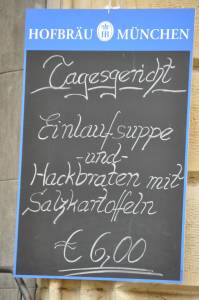 HOFBRÄU HB MÜNCHEN
Tagesgericht
Einlaufsuppe
-und-
Hackbraten mit
Salzkartoffeln
€ 6,00